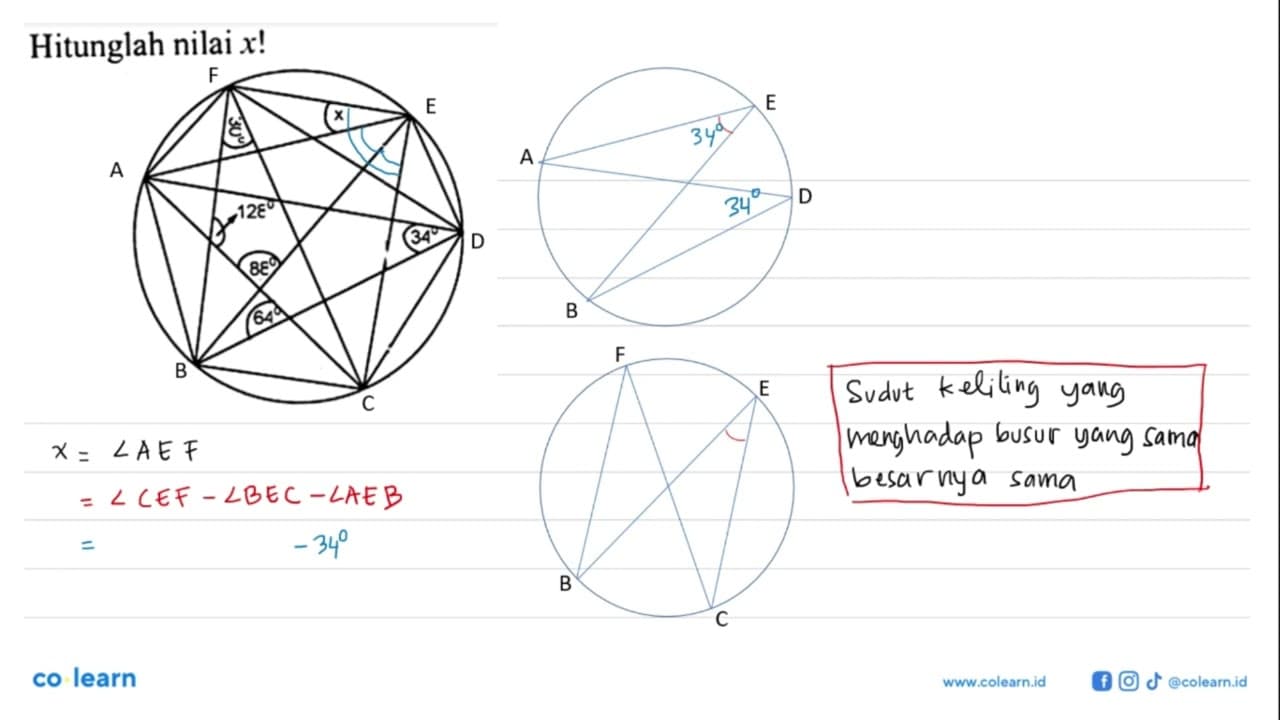 Hitunglah nilai x!
F
E
x
30°
A
128°
34°
D
88°
64°
B
C
E
34°
A
34°
D
B
F
E
B
C
Sudut keliling yang
menghadap busur yang sama
besarnya sama
x = ∠AEF
= ∠CEF - ∠BEC - ∠AEB
= - 34°
co learn
www.colearn.id
@colearn.id